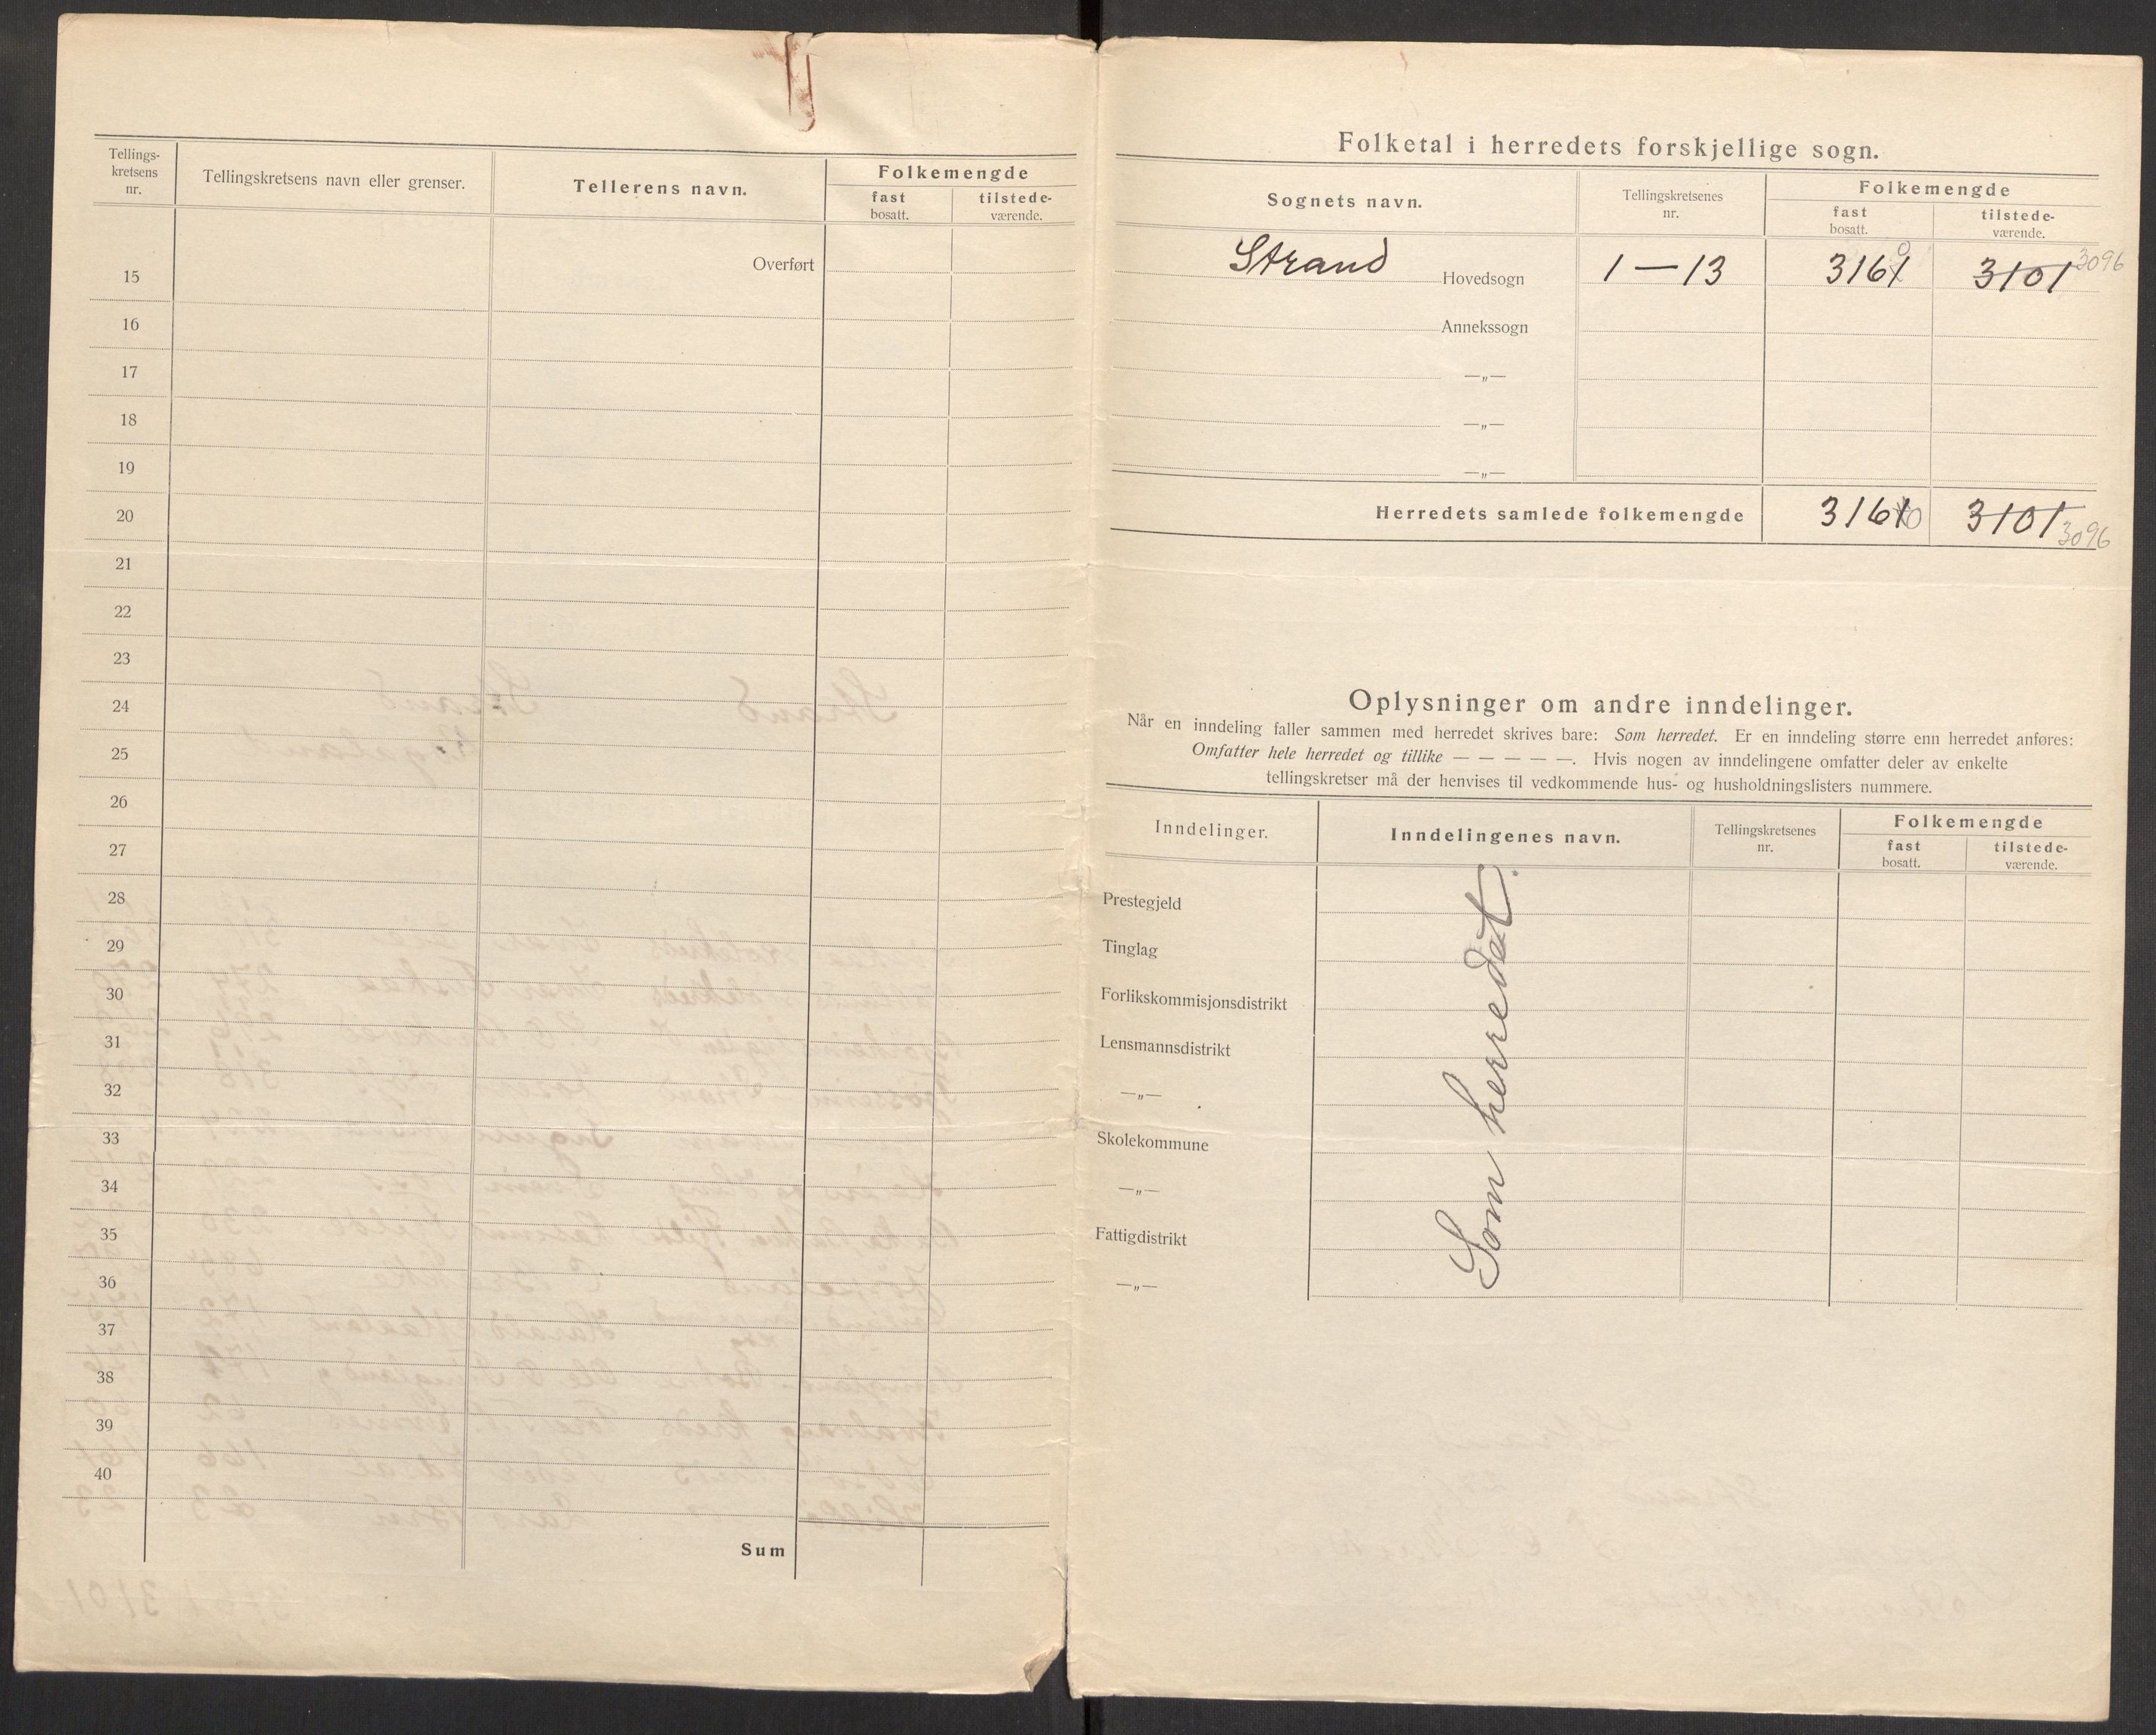 Tellings-
kretsens
nr.
Tellingskretsens navn eller grenser.
Tellerens navn.
Folkemengde
fast
bosatt.
tilstede-
værende.
Overført
15
16
17
18
19
20
21
22
23
24
25
26
27
28
29
30
31
32
33
34
35
36
37
38
39
40
Sum
Folketal i herredets forskjellige sogn.
Sognets navn.
Tellingskretsenes
nr.
Folkemengde
fast
bosatt.
tilstede-
værende.
Strand Hovedsogn 1—13 3161 0 3101 3096
Annekssogn
—„—
—„—
—„—
Herredets samlede folkemengde 3161 0 3101 3096
Oplysninger om andre inndelinger.
Når en inndeling faller sammen med herredet skrives bare: Som herredet. Er en inndeling større enn herredet anføres:
Omfatter hele herredet og tillike — — — — —. Hvis nogen av inndelingene omfatter deler av enkelte
tellingskretser må der henvises til vedkommende hus- og husholdningslisters nummere.
Inndelinger.
Inndelingenes navn.
Tellingskretsenes
nr.
Folkemengde
fast
bosatt.
tilstede-
værende.
Prestegjeld
Tinglag
Forlikskommisjonsdistrikt
Lensmannsdistrikt
—„—
Skolekommune
—„—
Fattigdistrikt
—„—
Som herredet.